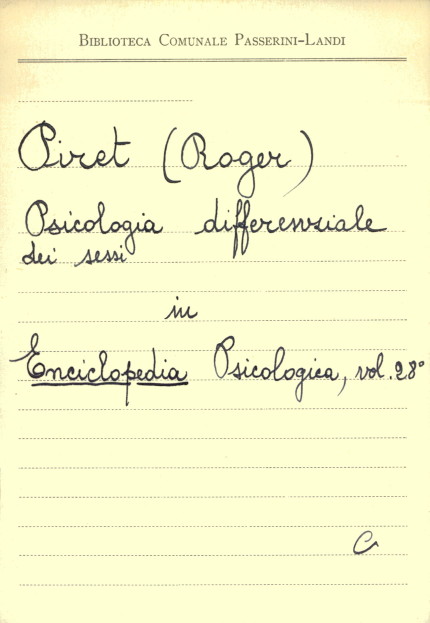 BIBLIOTECA COMUNALE PASSERINI-LANDI
Piret (Roger)
Psicologia differenziale
dei sessi
in
Enciclopedia Psicologica, vol. 28°
C